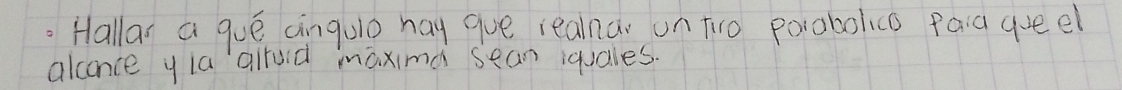 • Hallar a qué ángulo hay que realizar un tiro parabolico para que el
alcance y la altura máxima sean iguales.